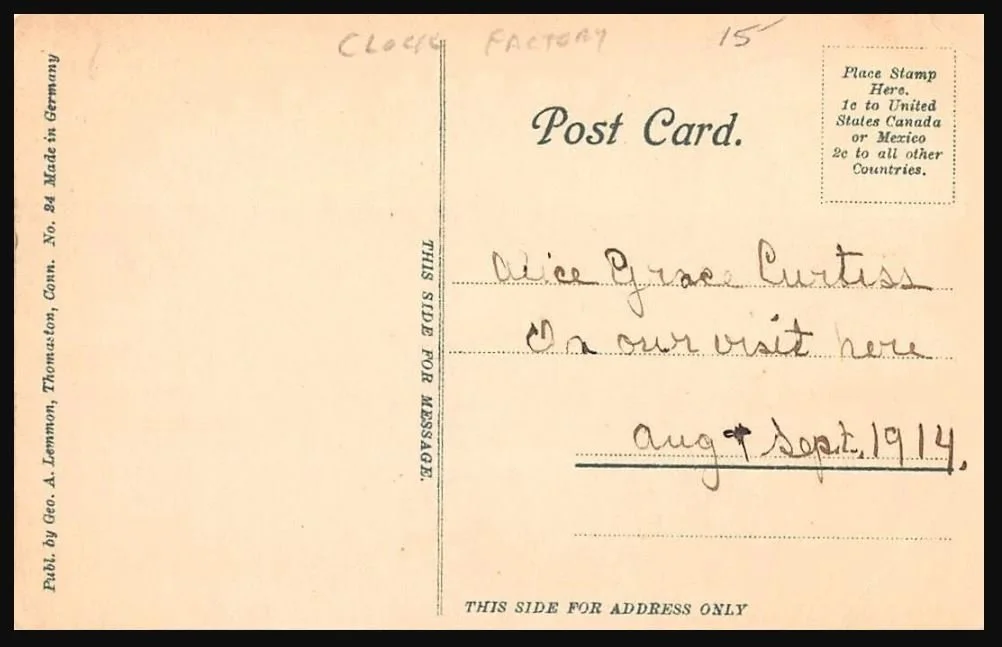 CLOCK FACTORY 15
Publ. by Geo. A. Lemmon, Thomaston, Conn. No. 84 Made in Germany
THIS SIDE FOR MESSAGE.
Post Card.
Place Stamp
Here.
1c to United
States Canada
or Mexico
2c to all other
Countries.
Alice Grace Curtiss
On our visit here
Aug & Sept. 1914.
THIS SIDE FOR ADDRESS ONLY